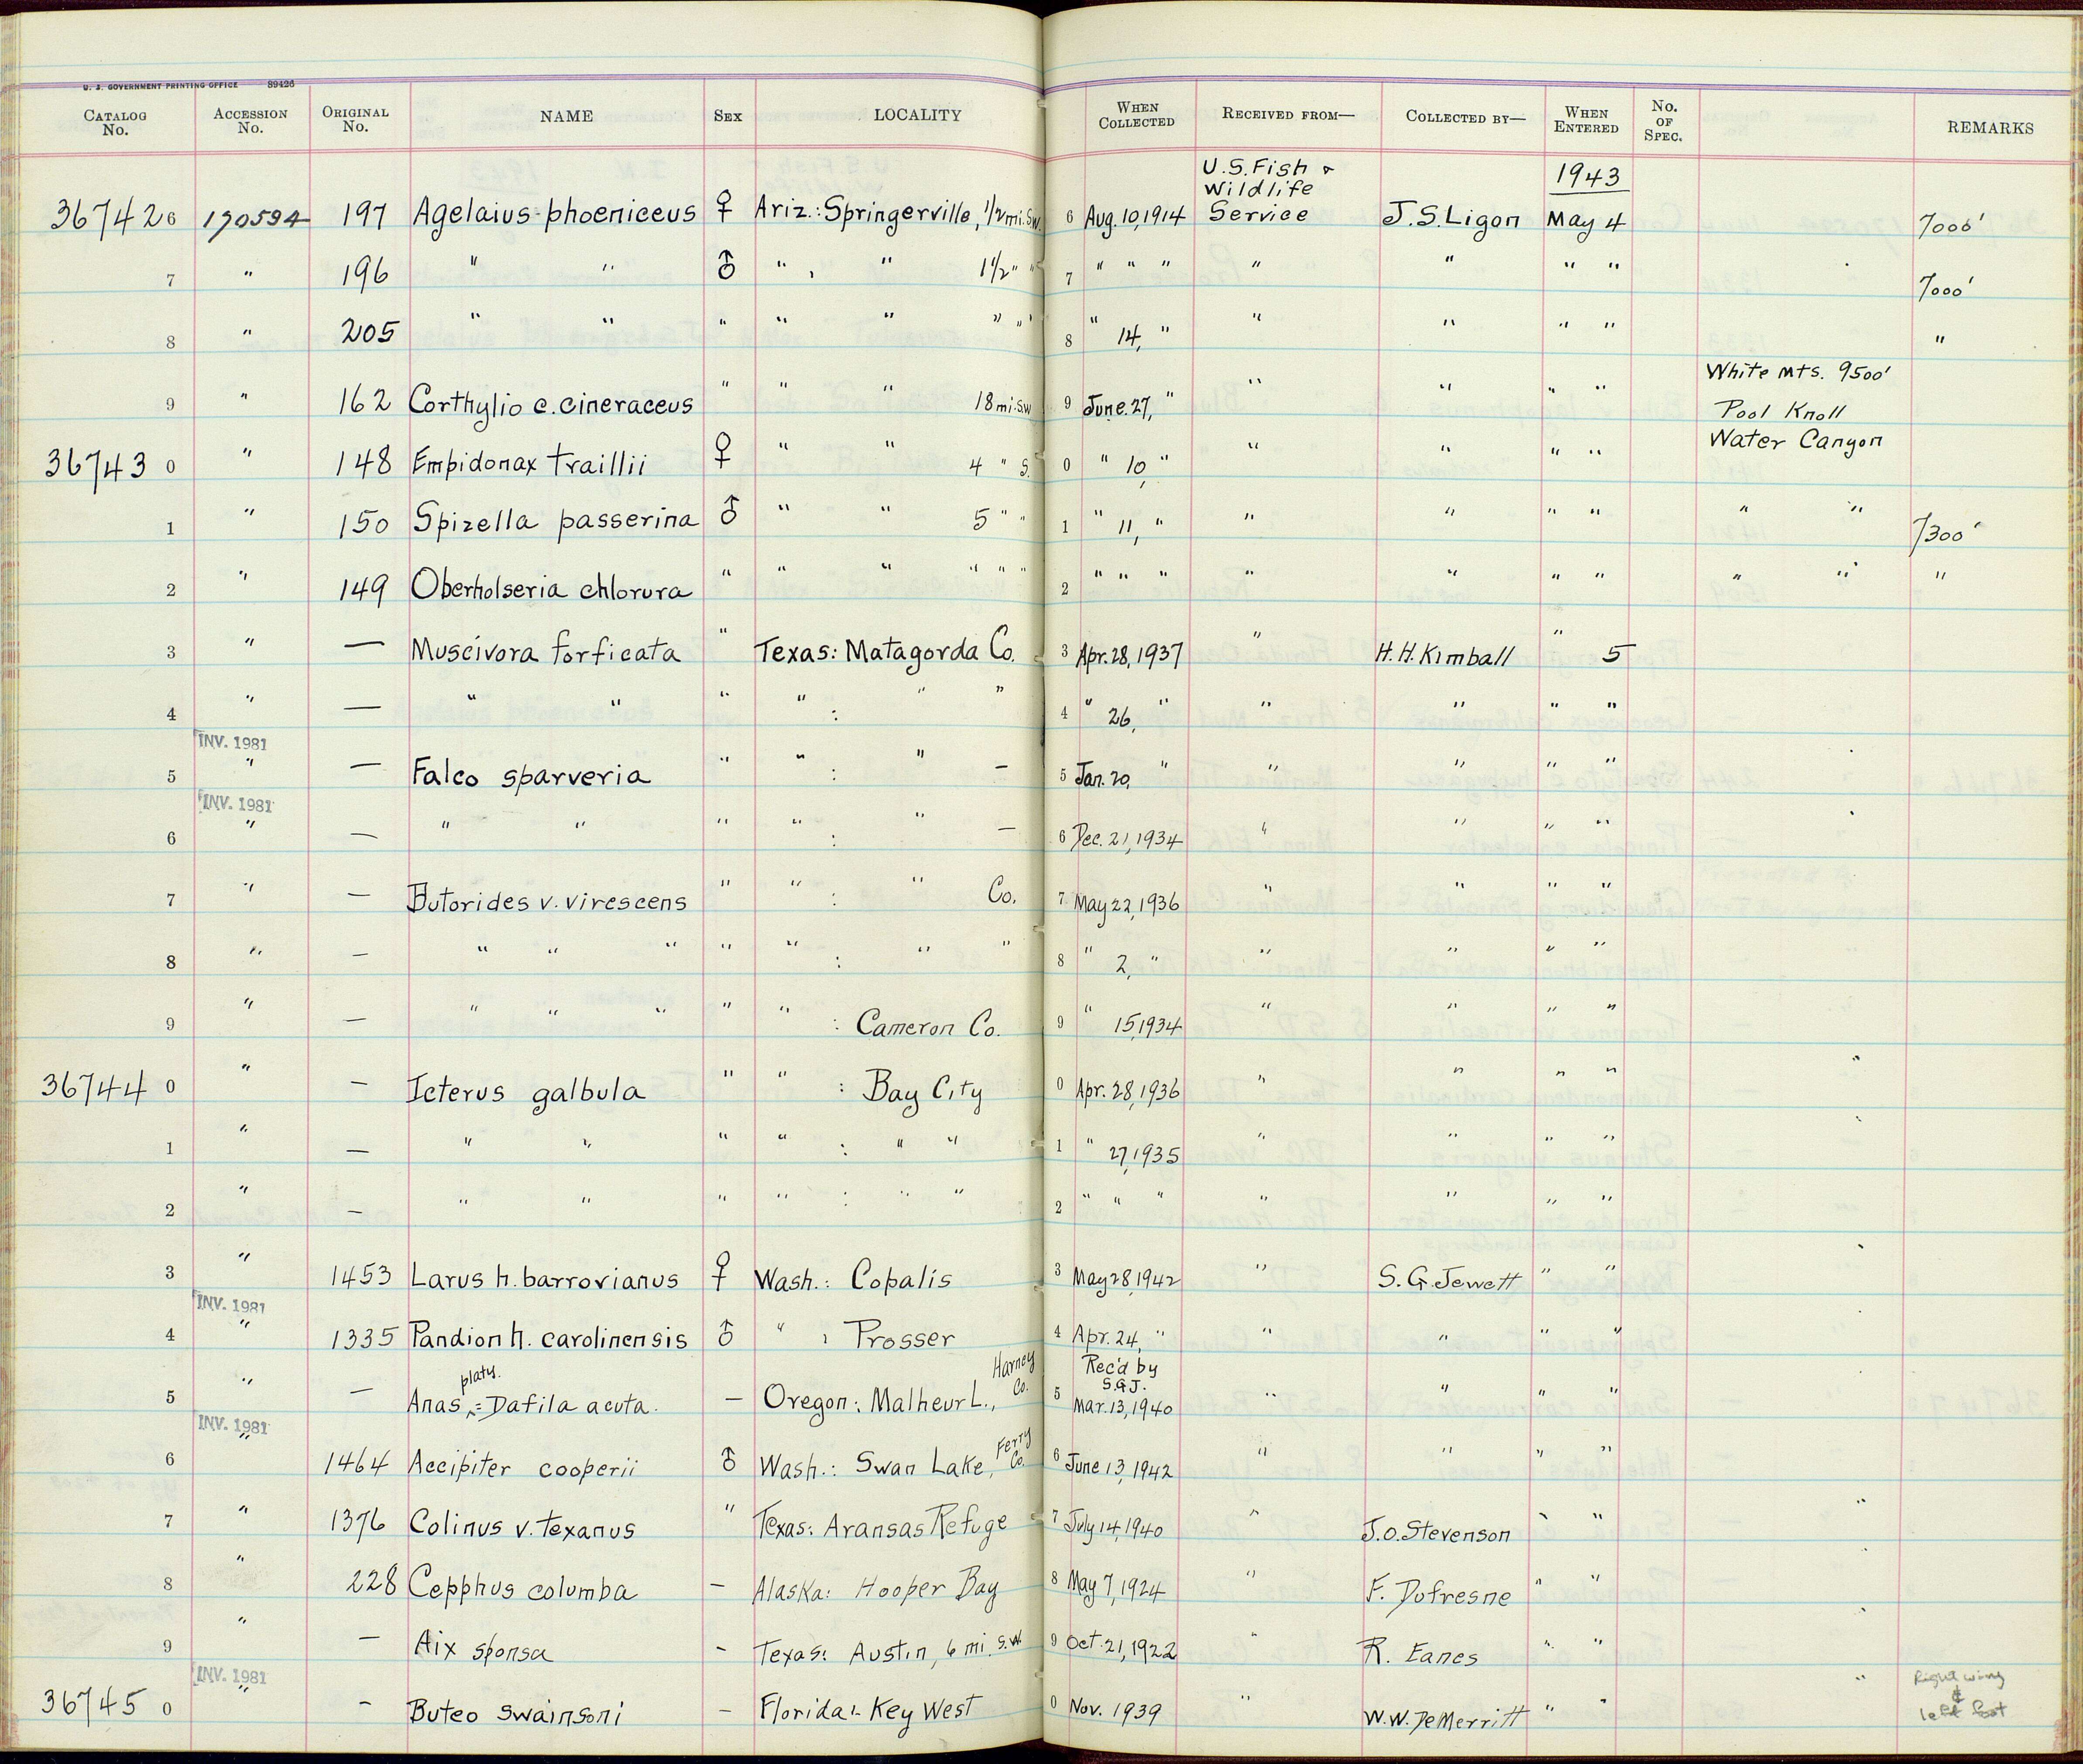 U. S. GOVERNMENT PRINTING OFFICE 89426
CATALOG No. ACCESSION No. ORIGINAL No. NAME SEX LOCALITY WHEN COLLECTED RECEIVED FROM— COLLECTED BY— WHEN ENTERED No. OF SPEC. REMARKS
367426 170594 197 Agelaius phoeniceus ♀ Ariz.: Springerville, 1/2 mi. S.W. 6 Aug. 10, 1914 U.S. Fish & Wildlife Service J.S. Ligon 1943 May 4 7000'
7 " 196 " " ♂ " , " 1 1/2 " " 7 " " " " " " " 7000'
8 " 205 " " " " " " " " 8 " 14, " " " " " "
9 " 162 Corthylio c. cineraceus " " " 18 mi. S.W 9 June. 27, " " " " " White Mts. 9500' Pool Knoll
367430 " 148 Empidonax traillii ♀ " " 4 " S. 0 " 10, " " " " " Water Canyon
1 " 150 Spizella passerina ♂ " " 5 " " 1 " 11, " " " " " " " 7300'
2 " 149 Oberholseria chlorura " " " " " " 2 " " " " " " " " " "
3 " — Muscivora forficata " Texas: Matagorda Co. 3 Apr. 28, 1937 " H. H. Kimball " 5
4 " — " " " " : " " 4 " 26, " " " " "
INV. 1981
5 " — Falco sparveria " " : " — 5 Jan. 20, " " " " "
INV. 1981
6 " — " " " " : " — 6 Dec. 21, 1934 " " " "
7 " — Butorides v. virescens " " : " Co. 7 May 22, 1936 " " " "
8 " — " " " " " : " " 8 " 2, " " " " "
9 " — " " " " " : Cameron Co. 9 " 15, 1934 " " " "
367440 " — Icterus galbula " " : Bay City 0 Apr. 28, 1936 " " " "
1 " — " " " " : " " 1 " 27, 1935 " " " "
2 " — " " " " : " " 2 " " " " " " "
3 " 1453 Larus h. barrovianus ♀ Wash.: Copalis 3 May 28, 1942 " S. G. Jewett " "
INV. 1981
4 " 1335 Pandion h. carolinensis ♂ " , Prosser 4 Apr. 24, " " " " "
5 " — Anas platy. = Dafila acuta. — Oregon: Malheur L., Harney Co. 5 Rec'd by S.G.J. Mar. 13, 1940 " " " "
INV. 1981
6 " 1464 Accipiter cooperii ♂ Wash.: Swan Lake, Ferry Co. 6 June 13, 1942 " " " "
7 " 1376 Colinus v. texanus " Texas: Aransas Refuge 7 July 14, 1940 " J.O. Stevenson " "
8 " 228 Cepphus columba — Alaska: Hooper Bay 8 May 7, 1924 " F. Dufresne " "
9 " — Aix sponsa - Texas: Austin, 6 mi. S.W. 9 Oct. 21, 1922 " R. Eanes " "
INV. 1981
367450 " — Buteo swainsoni — Florida: Key West 0 Nov. 1939 " W.W. DeMerritt " " Right wing & left foot